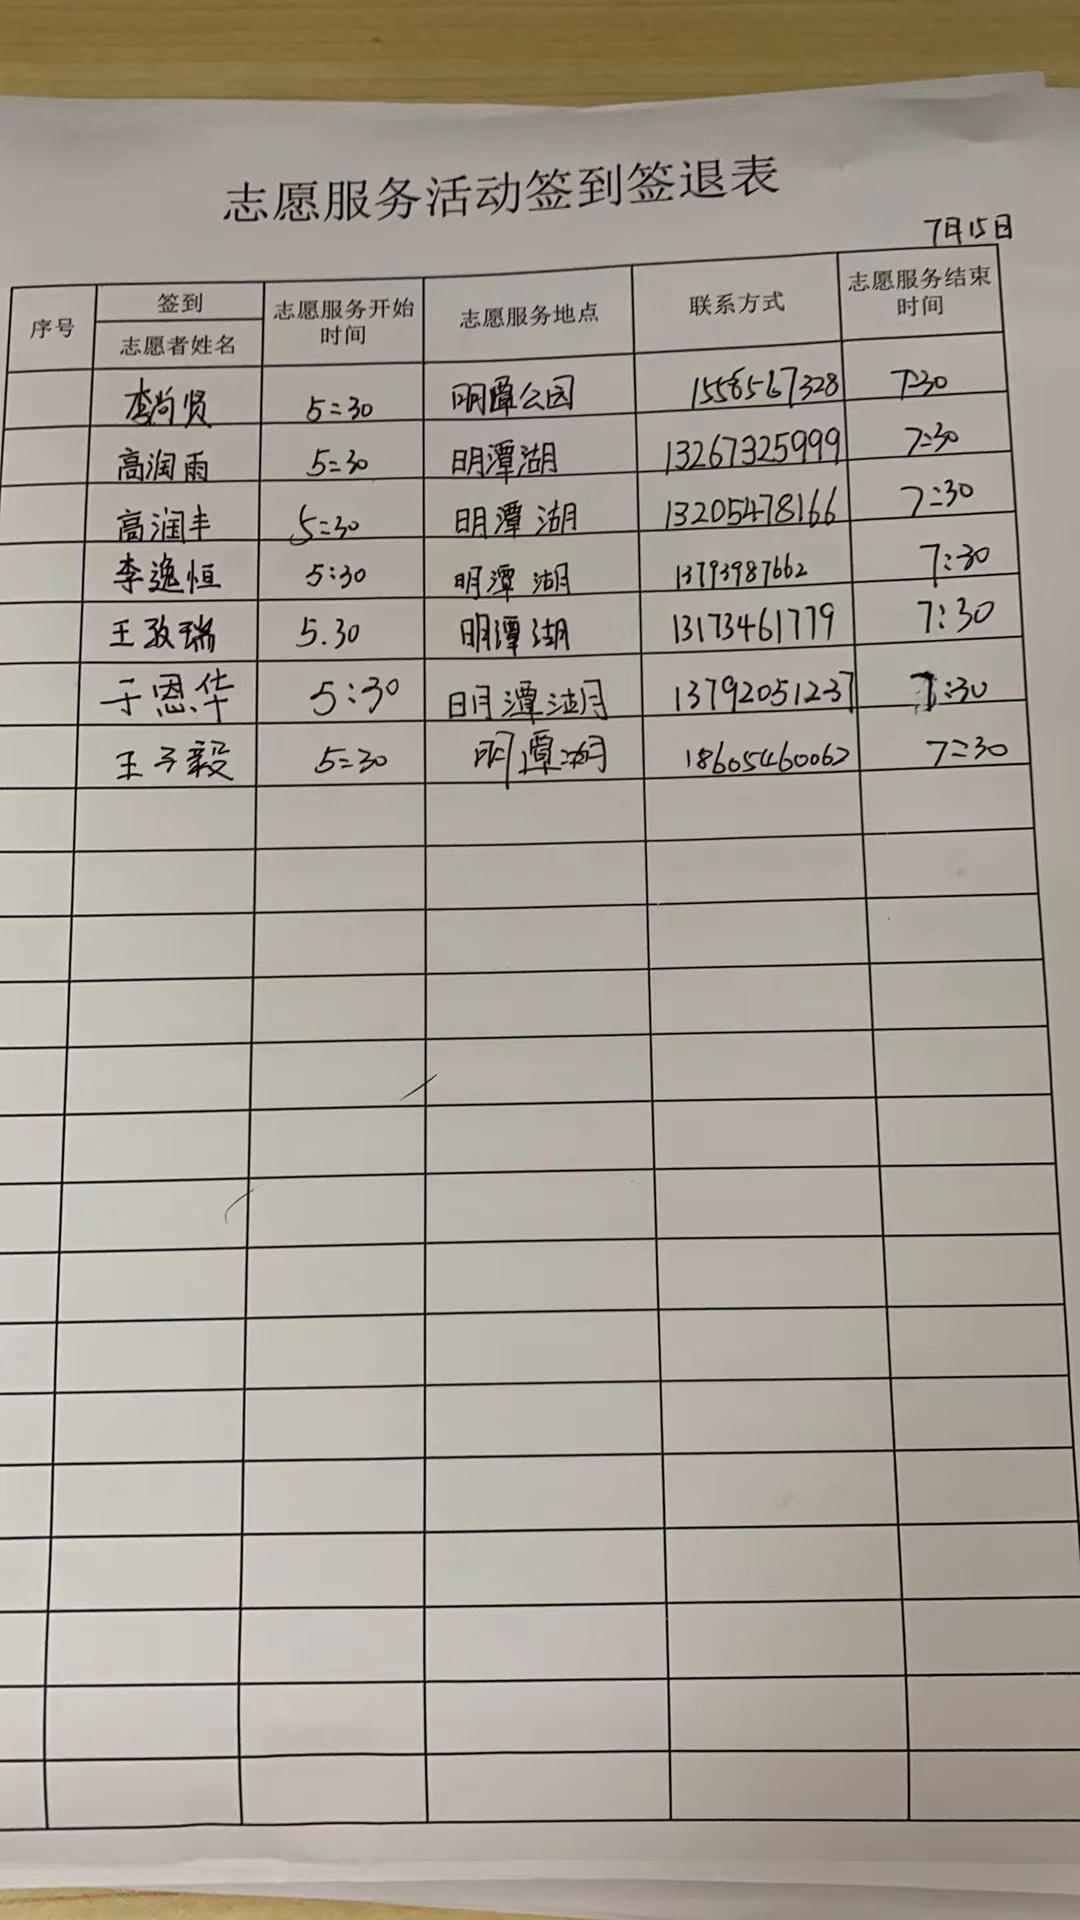 志愿服务活动签到签退表
7月15日
序号 签到 志愿者姓名 志愿服务开始时间 志愿服务地点 联系方式 志愿服务结束时间
李尚贤 5:30 明潭公园 1558567328 7:30
高润雨 5:30 明潭湖 13267325999 7:30
高润丰 5:30 明潭湖 13205478166 7:30
李逸恒 5:30 明潭湖 13793987662 7:30
王孜瑞 5.30 明潭湖 13173461779 7:30
于恩华 5:30 明潭湖 13792051237 7:30
王子毅 5:30 明潭湖 18605460062 7:30